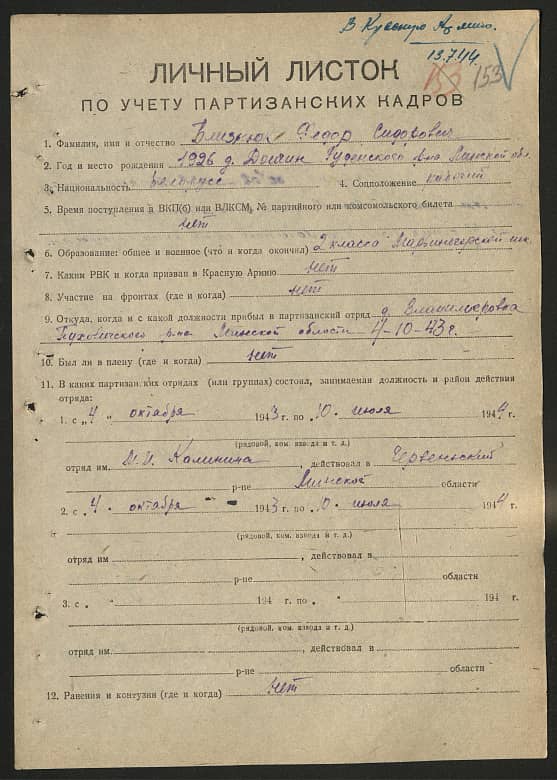 В Красную Армию.
13.7.44
153 153
ЛИЧНЫЙ ЛИСТОК
ПО УЧЕТУ ПАРТИЗАНСКИХ КАДРОВ
1. Фамилия, имя и отчество Близнюк Федор Сидорович
2. Год и место рождения 1926 д. Руденского р-на Минской обл.
3. Национальность белорусс 4. Соцположение рабочий
5. Время поступления в ВКП(б) или ВЛКСМ, № партийного или комсомольского билета
нет
6. Образование: общее и военное (что и когда окончил) 2 класса
7. Каким РВК и когда призван в Красную Армию нет
8. Участие на фронтах (где и когда) нет
9. Откуда, когда и с какой должности прибыл в партизанский отряд д.
Пуховичского р-на Минской области 4-10-43 г.
10. Был ли в плену (где и когда) нет
11. В каких партизанских отрядах (или группах) состоял, занимаемая должность и район действия
отряда:
1. с „4 “ октября 1943 г. по „10. июля 1944 г.
(рядовой, ком. взвода и т. д.)
отряд им. М.И. Калинина, действовал в Червеньский
р-не Минской области
2. с „4. октября 1943 г. по „10. июля 1944 г.
(рядовой, ком. взвода и т. д.)
отряд им , действовал в
р-не области
3. с „ 194 г. по „ 194 г.
(рядовой, ком. взвода и т. д.)
отряд им. , действовал в
р-не области
12. Ранения и контузии (где и когда) нет